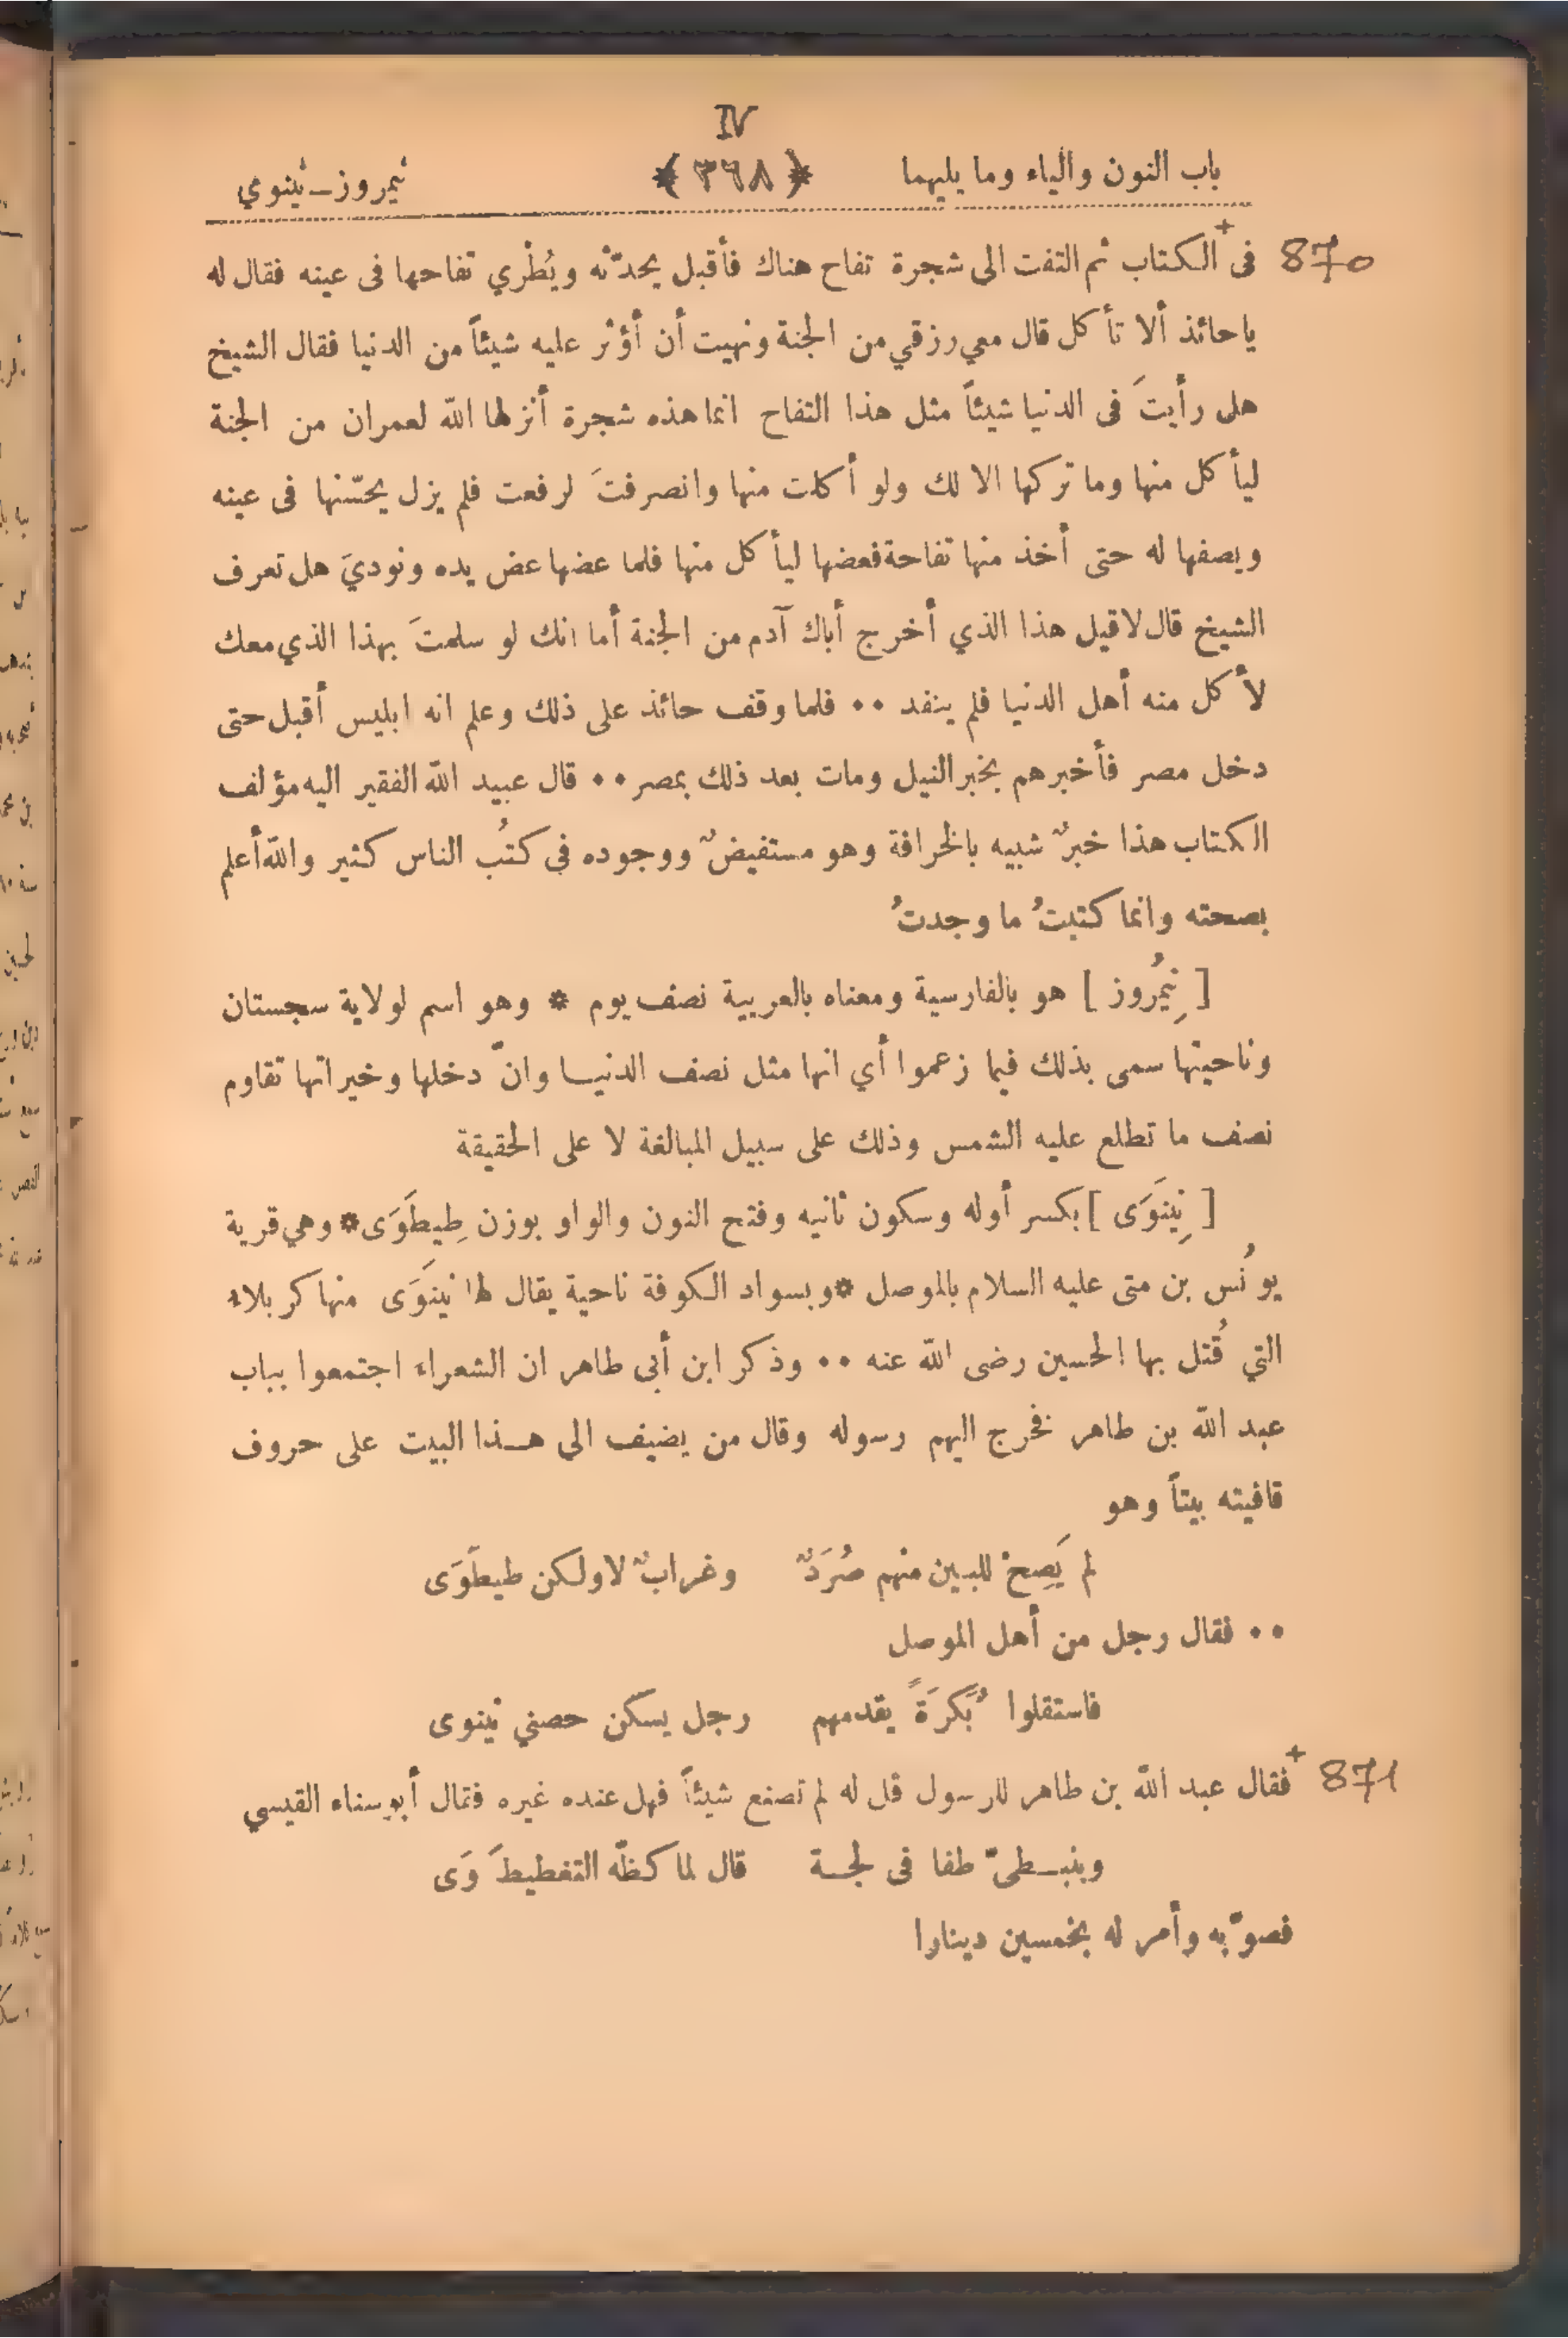 IV
باب النون والياء وما يليهما ﴿ ٣٦٨ ﴾ نيمروز ــ نينوي
870 فى +الكتاب ثم التفت الى شجرة تفاح هناك فأقبل يحدّثه ويُطْري تفاحها فى عينه فقال له
ياحائذ ألا تأكل قال معي رزقي من الجنة ونهيت أن أؤثر عليه شيئاً من الدنيا فقال الشيخ
هل رأيتَ فى الدنيا شيئاً مثل هذا التفاح انما هذه شجرة أنزلها الله لعمران من الجنة
ليأكل منها وما تركها الا لك ولو أكلت منها وانصرفتَ لرفعت فلم يزل يحسّنها فى عينه
ويصفها له حتى أخذ منها تفاحة فعضها ليأكل منها فلما عضها عض يده ونوديَ هل تعرف
الشيخ قال لا قيل هذا الذي أخرج أباك آدم من الجنة أما انك لو سلمتَ بهذا الذي معك
لأكل منه أهل الدنيا فلم ينفد ٠٠ فلما وقف حائذ على ذلك وعلم انه ابليس أقبل حتى
دخل مصر فأخبرهم بخبر النيل ومات بعد ذلك بمصر ٠٠ قال عبيد الله الفقير اليه مؤلف
الكتاب هذا خبرٌ شبيه بالخرافة وهو مستفيضٌ ووجوده في كتُب الناس كثير والله أعلم
بصحته وانما كتبتُ ما وجدتُ
[ نِيمُروز ] هو بالفارسية ومعناه بالعربية نصف يوم * وهو اسم لولاية سجستان
وناحيتها سمى بذلك فيما زعموا أي انها مثل نصف الدنيــا وانّ دخلها وخيراتها تقاوم
نصف ما تطلع عليه الشمس وذلك على سبيل المبالغة لا على الحقيقة
[ نِينَوَى ] بكسر أوله وسكون ثانيه وفتح النون والواو بوزن طِيطَوَى* وهي قرية
يونُس بن متى عليه السلام بالموصل *وبسواد الكوفة ناحية يقال لها نينَوَى منها كربلاء
التي قُتل بها الحسين رضى الله عنه ٠٠ وذكر ابن أبى طاهر ان الشعراء اجتمعوا بباب
عبد الله بن طاهر فخرج اليهم رسوله وقال من يضيف الى هــذا البيت على حروف
قافيته بيتاً وهو
لم يَصِحْ للبين منهم صُرَدٌ وغرابٌ لا ولكن طيطَوَى
٠٠ فقال رجل من أهل الموصل
فاستقلوا بُكرَةً يقدمهم رجل يسكن حصني نينوى
871 +فقال عبد الله بن طاهر للرسول قل له لم تصنع شيئاً فهل عنده غيره فقال أبو سناء القيسي
وبنبــطىّ طفا فى لجــة قال لما كظّه التغطيطَ وَى
فصوّبه وأمر له بخمسين دينارا